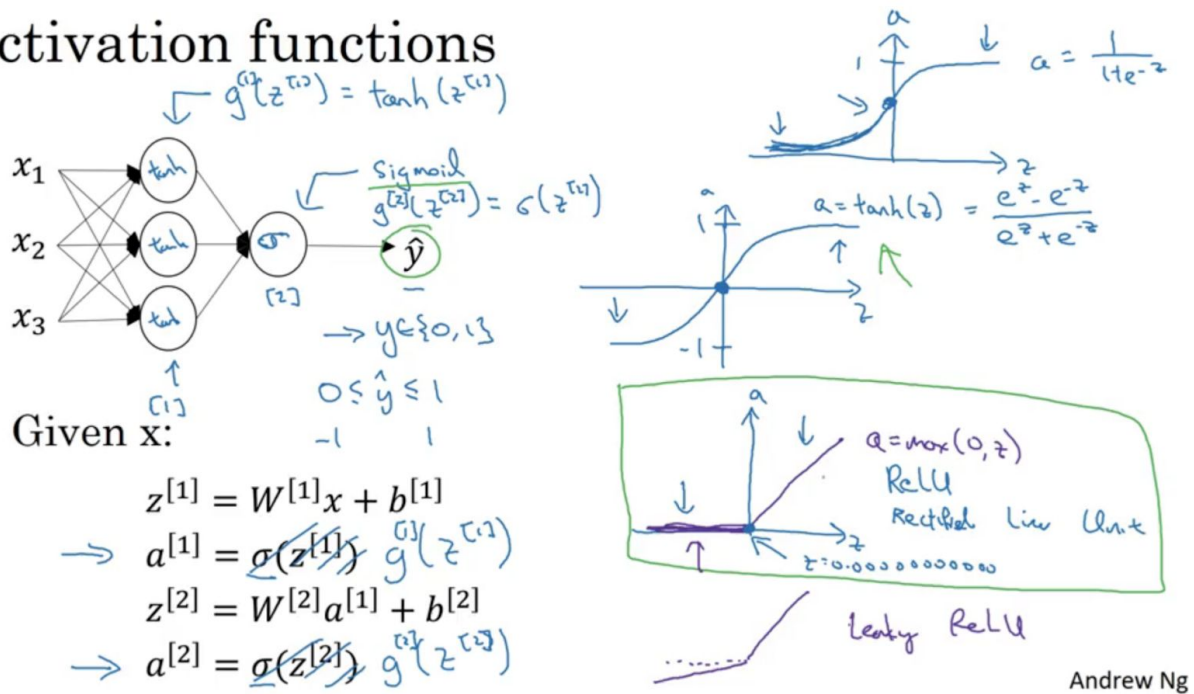 ctivation functions
g^[1](z^[1]) = tanh(z^[1])
x₁
x₂
x₃
tanh
tanh
tanh
σ
[1]
[2]
Sigmoid
g^[2](z^[2]) = σ(z^[2])
ŷ
→ y∈{0,1}
0 ≤ ŷ ≤ 1
-1 1
Given x:
z^[1] = W^[1]x + b^[1]
→ a^[1] = σ(z^[1]) g^[1](z^[1])
z^[2] = W^[2]a^[1] + b^[2]
→ a^[2] = σ(z^[2]) g^[2](z^[2])
a
1
z
a = 1/(1+e^-z)
a
1
-1
z
a = tanh(z) = (e^z - e^-z)/(e^z + e^-z)
a
z
a = max(0,z)
ReLU
Rectified Linear Unit
z=0.00000000000
Leaky ReLU
Andrew Ng